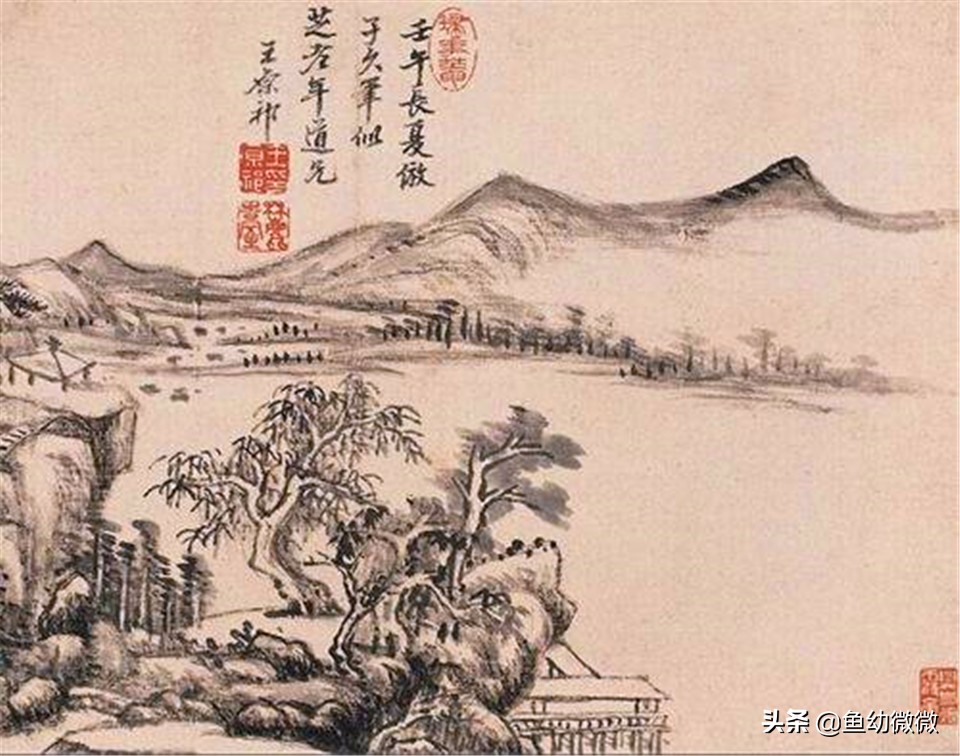 壬午長夏倣
子久筆似
芝老年道兄
王原祁
王印原祁
头条 @鱼幼微微